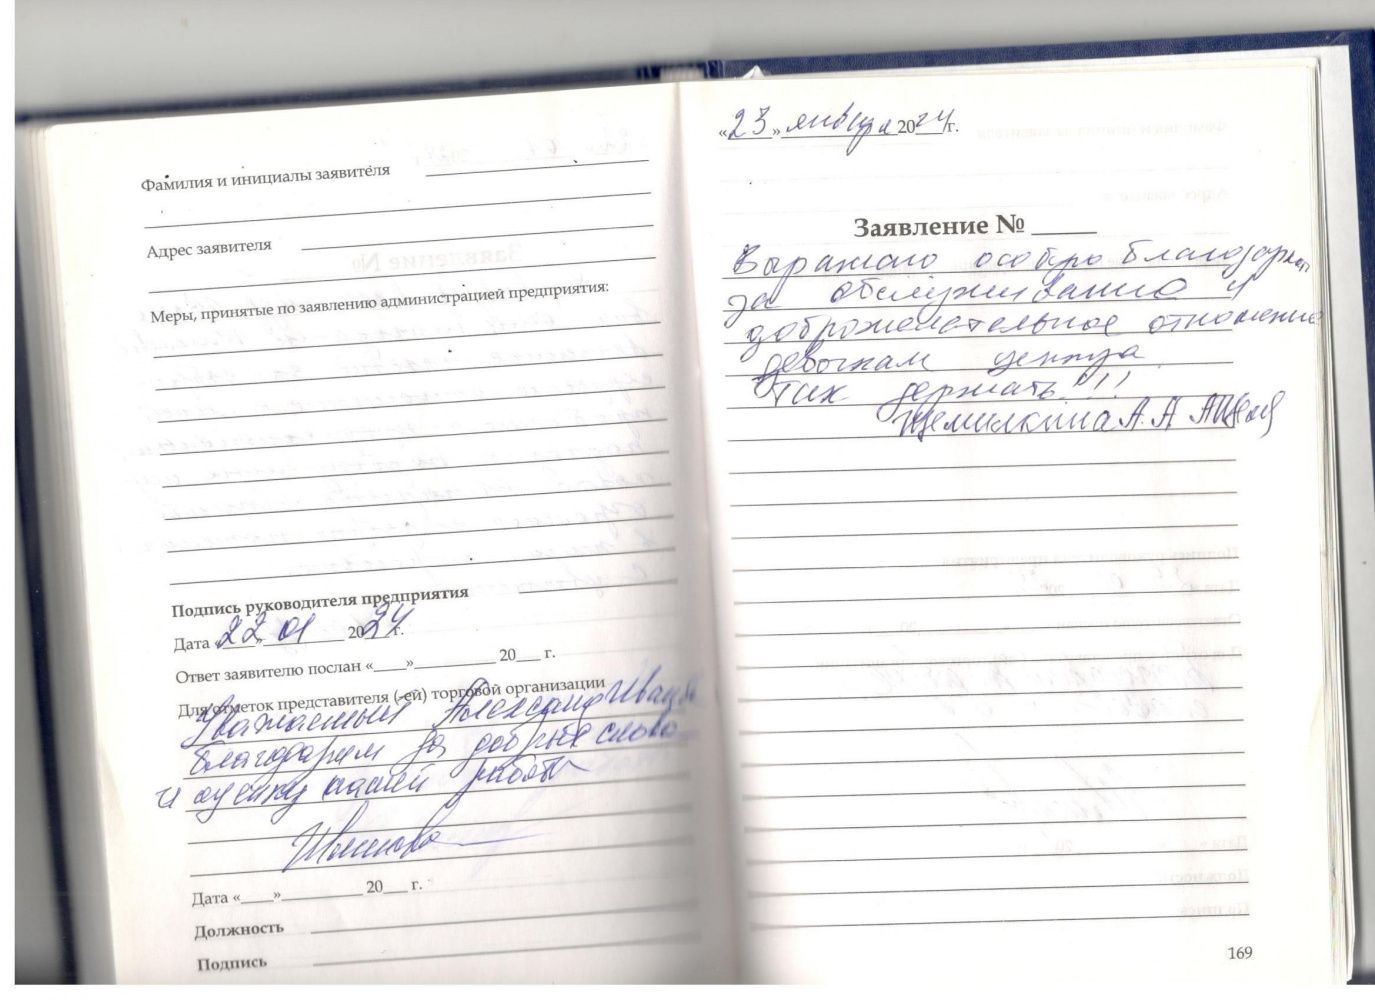 Фамилия и инициалы заявителя
Адрес заявителя
Меры, принятые по заявлению администрацией предприятия:
Подпись руководителя предприятия
Дата «22» 01 2024 г.
Ответ заявителю послан «____»__________ 20___ г.
Для отметок представителя (-ей) торговой организации
Уважаемый Александр Иванович
Благодарим за добрые слова
и оценку нашей работы
Дата «____»__________ 20___ г.
Должность
Подпись
«23» января 2024 г.
Заявление № _____
Выражаю особую благодарность
за обслуживание и
доброжелательное отношение
девочкам центра
Так держать!!!
Щемилкина А.А
169